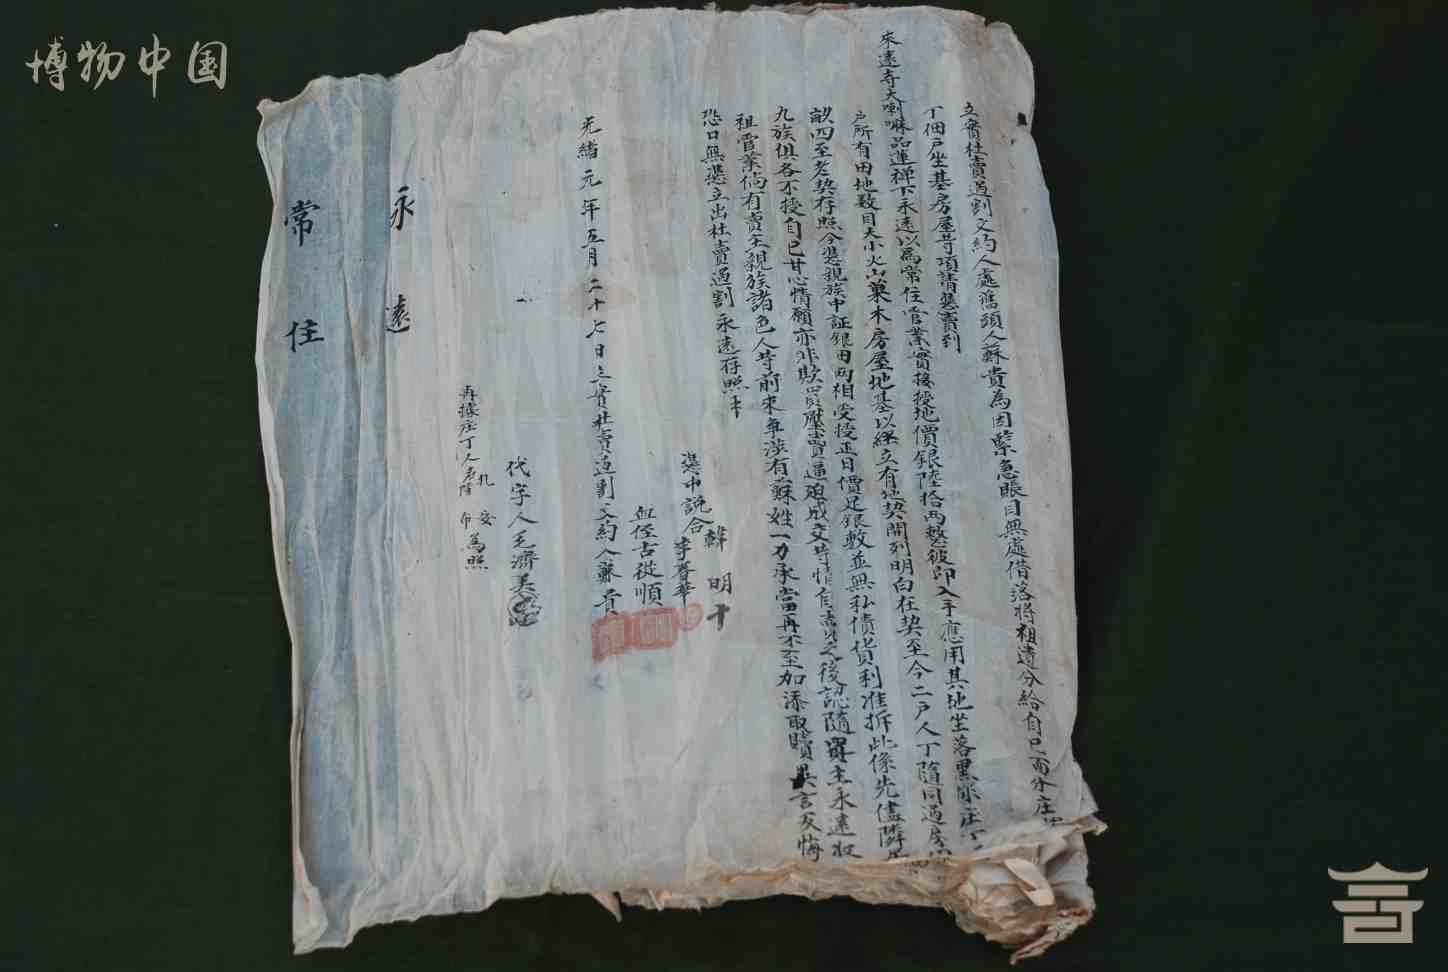 博物中国
立實杜賣過割文約人處爲頭人蘇貴為因緊急賬目無處借落將祖遺分給自己面分庄
丁佃戶坐基房屋等項請憑賣到
來遠寺大喇嘛品蓮禪下永遠以爲常住管業實接授地價銀陸拾兩整彼即入手應用其地坐落黑 庄
戶所有田地數目大小火山菓木房屋地基以經立有地契開列明白在契至今二戶人丁隨同過房
畝四至老契存照今憑親族中証銀田兩相交授正日價足銀數並無私債貨利准折此係先儘隣
九族俱各不授自己甘心情願亦非欺 壓賣逼迫成交等情自賣之後認隨買主永遠收
祖管業倘有賣主親族諸色人等前來争論有蘇姓一力承當再不至加添取贖異言反悔
恐口無憑立出杜賣過割永遠存照
憑中說合
韓明十
李春華
血侄古從順
光緒元年五月二十七日立實杜賣過割文約人蘇貴
代字人王濟美
再據庄丁人名 為照
永遠
常住